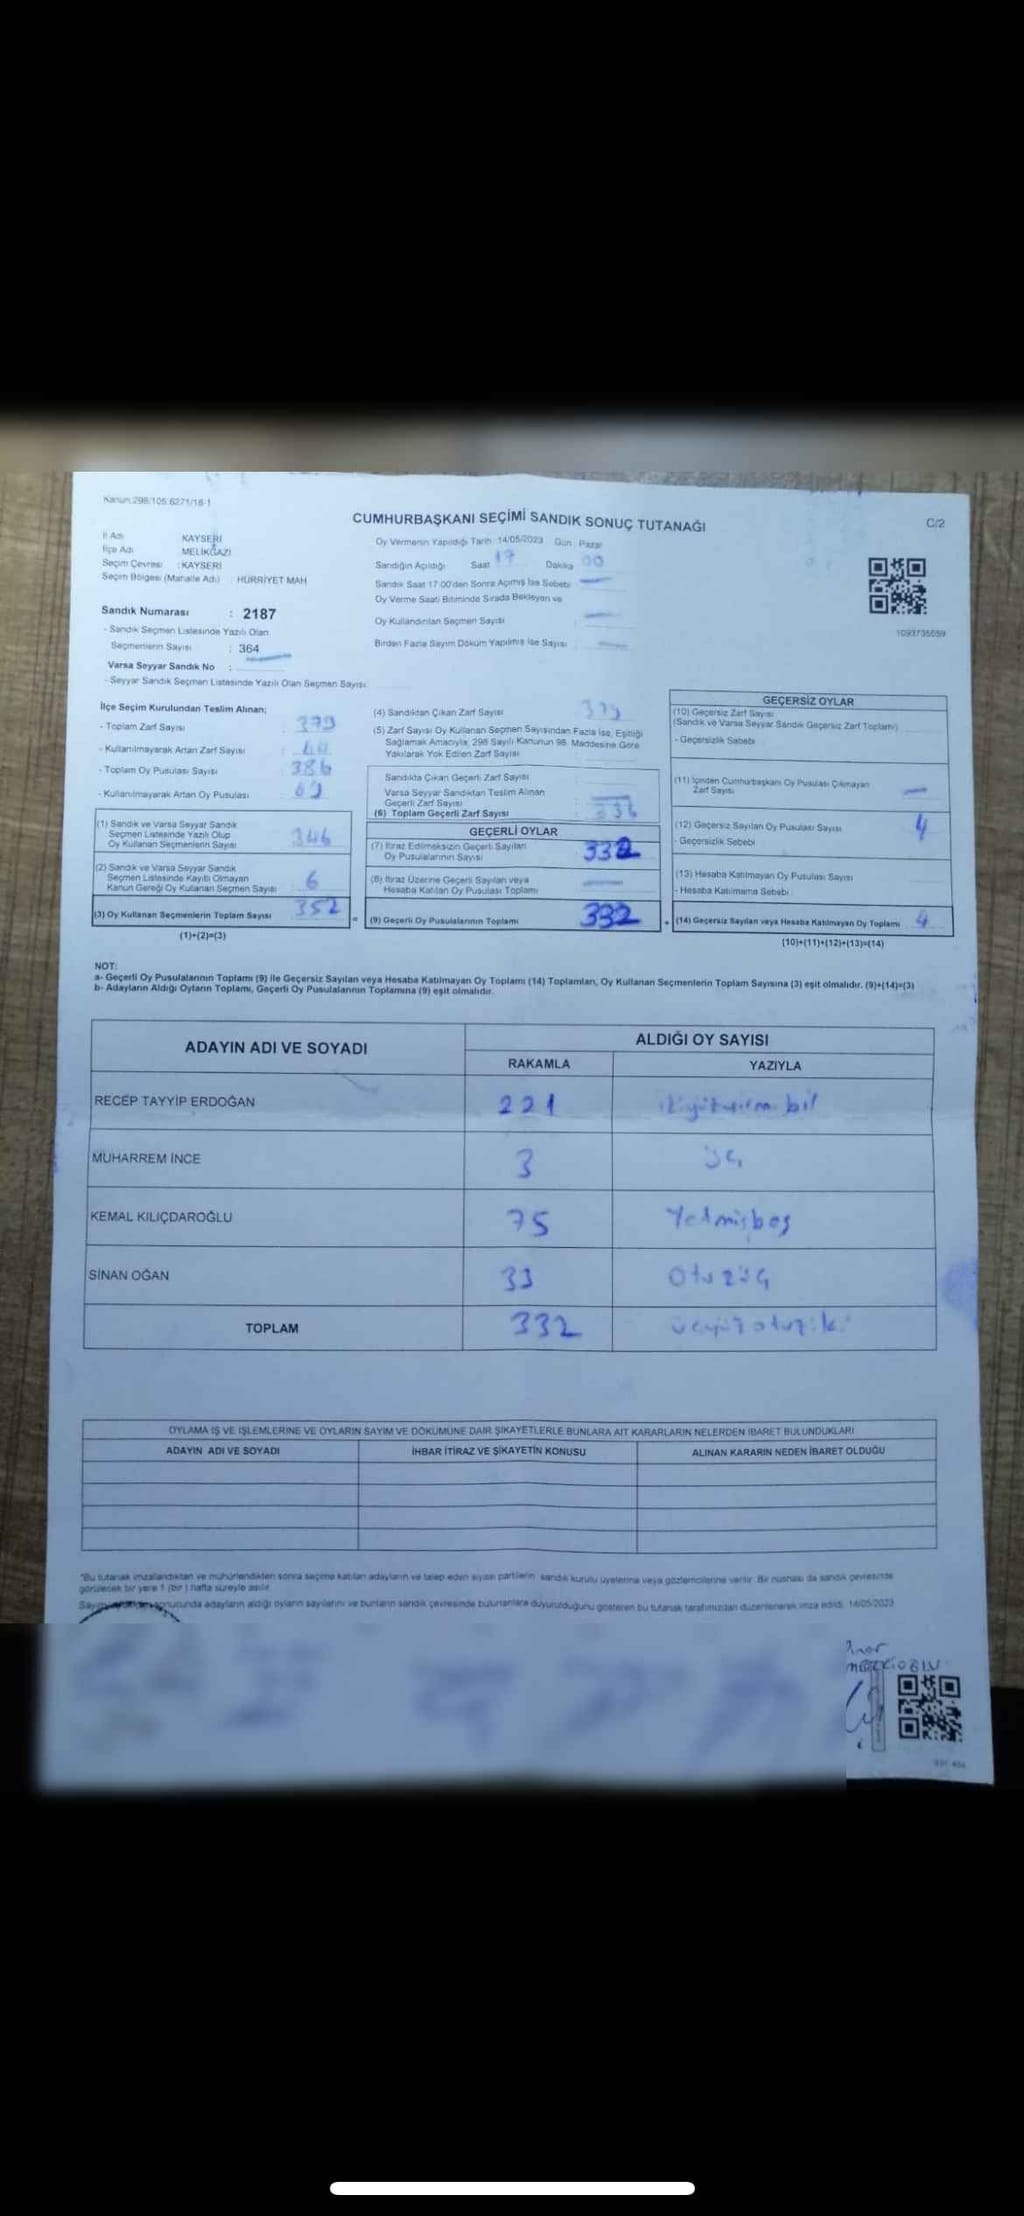 Kanun:298/105.6271/18-1
CUMHURBAŞKANI SEÇİMİ SANDIK SONUÇ TUTANAĞI
C/2
İl Adı KAYSERİ
İlçe Adı MELİKGAZİ
Seçim Çevresi : KAYSERİ
Seçim Bölgesi (Mahalle Adı) : HÜRRİYET MAH
Oy Vermenin Yapıldığı Tarih: 14/05/2023 Gün: Pazar
Sandığın Açıldığı Saat 17 Dakika 00
Sandık Saat 17:00'den Sonra Açımış İse Sebebi
Oy Verme Saati Bitiminde Sırada Bekleyen ve
Oy Kullandırılan Seçmen Sayısı
Birden Fazla Sayım Döküm Yapılmış İse Sayısı :
1093735059
Sandık Numarası : 2187
- Sandık Seçmen Listesinde Yazılı Olan
Seçmenlerin Sayısı : 364
Varsa Seyyar Sandık No :
- Seyyar Sandık Seçmen Listesinde Yazılı Olan Seçmen Sayısı:
İlçe Seçim Kurulundan Teslim Alınan;
- Toplam Zarf Sayısı : 379
- Kullanılmayarak Artan Zarf Sayısı :
- Toplam Oy Pusulası Sayısı : 386
- Kullanılmayarak Artan Oy Pusulası :
(1) Sandık ve Varsa Seyyar Sandık
Seçmen Listesinde Yazılı Olup
Oy Kullanan Seçmenlerin Sayısı 346
(2) Sandık ve Varsa Seyyar Sandık
Seçmen Listesinde Kayıtlı Olmayan
Kanun Gereği Oy Kullanan Seçmen Sayısı 6
(3) Oy Kullanan Seçmenlerin Toplam Sayısı 352
(1)+(2)=(3)
=
(4) Sandıktan Çıkan Zarf Sayısı
(5) Zarf Sayısı Oy Kullanan Seçmen Sayısından Fazla İse, Eşitliği
Sağlamak Amacıyla, 298 Sayılı Kanunun 98. Maddesine Göre
Yakılarak Yok Edilen Zarf Sayısı
Sandıkta Çıkan Geçerli Zarf Sayısı
Varsa Seyyar Sandıktan Teslim Alınan
Geçerli Zarf Sayısı
(6) Toplam Geçerli Zarf Sayısı 336
GEÇERLİ OYLAR
(7) İtiraz Edilmeksizin Geçerli Sayılan
Oy Pusulalarının Sayısı 332
(8) İtiraz Üzerine Geçerli Sayılan veya
Hesaba Katılan Oy Pusulası Toplamı
(9) Geçerli Oy Pusulalarının Toplamı 332
+
GEÇERSİZ OYLAR
(10) Geçersiz Zarf Sayısı
(Sandık ve Varsa Seyyar Sandık Geçersiz Zarf Toplamı)
- Geçersizlik Sebebi
(11) İçinden Cumhurbaşkanı Oy Pusulası Çıkmayan
Zarf Sayısı
(12) Geçersiz Sayılan Oy Pusulası Sayısı 4
- Geçersizlik Sebebi
(13) Hesaba Katılmayan Oy Pusulası Sayısı
- Hesaba Katılmama Sebebi
(14) Geçersiz Sayılan veya Hesaba Katılmayan Oy Toplamı 4
(10)+(11)+(12)+(13)=(14)
NOT:
a- Geçerli Oy Pusulalarının Toplamı (9) ile Geçersiz Sayılan veya Hesaba Katılmayan Oy Toplamı (14) Toplamları, Oy Kullanan Seçmenlerin Toplam Sayısına (3) eşit olmalıdır. (9)+(14)=(3)
b- Adayların Aldığı Oyların Toplamı, Geçerli Oy Pusulalarının Toplamına (9) eşit olmalıdır.
ADAYIN ADI VE SOYADI
ALDIĞI OY SAYISI
RAKAMLA YAZIYLA
RECEP TAYYİP ERDOĞAN 221 bir
MUHARREM İNCE 3 üç
KEMAL KILIÇDAROĞLU 75 Yetmişbeş
SİNAN OĞAN 33 Otuzüç
TOPLAM 332 üçyüzotuziki
OYLAMA İŞ VE İŞLEMLERİNE VE OYLARIN SAYIM VE DÖKÜMÜNE DAİR ŞİKAYETLERLE BUNLARA AİT KARARLARIN NELERDEN İBARET BULUNDUKLARI
ADAYIN ADI VE SOYADI İHBAR İTİRAZ VE ŞİKAYETİN KONUSU ALINAN KARARIN NEDEN İBARET OLDUĞU
"Bu tutanak imzalandıktan ve mühürlendikten sonra seçime katılan adayların ve talep eden siyasi partilerin sandık kurulu üyelerine veya gözlemcilerine verilir. Bir nüshası da sandık çevresinde
görülecek bir yere 1 (bir) hafta süreyle asılır
sonucunda adayların aldığı oyların sayılarını ve bunların sandık çevresinde bulunanlara duyurulduğunu gösteren bu tutanak tarafımızdan düzenlenerek imza edildi. 14/05/2023